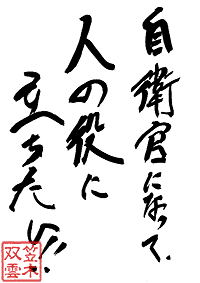 自衛官になって、
人の役に
立ちたい!!
笠木
双雲